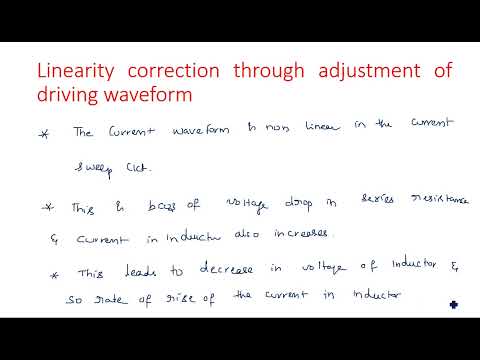 Linearity correction through adjustment of
driving waveform
* The current waveform is non linear in the current
sweep ckt.
* This is bcoz of voltage drop in series resistance
& current in inductor also increases.
* This leads to decrease in voltage of inductor &
so rate of rise of the current in inductor